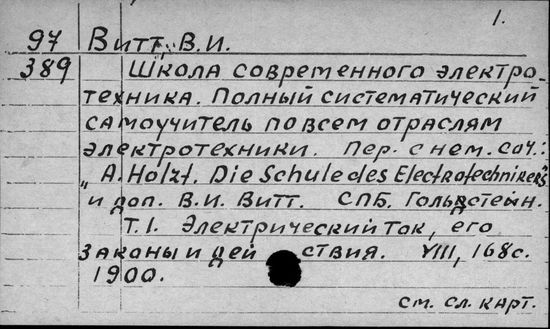 1.
97 Витт, В.И.
389 Школа современного электро-
техника. Полный систематический
самоучитель по всем отраслям
электротехники. Пер. с нем. соч.:
„A. Holzt. Die Schule des Electrotechnikers"
и доп. В.И. Витт. СПБ. Гольдстейн.
Т.I. Электрический ток, его
законы и действия. VIII, 168с.
1900.
см. сл. карт.